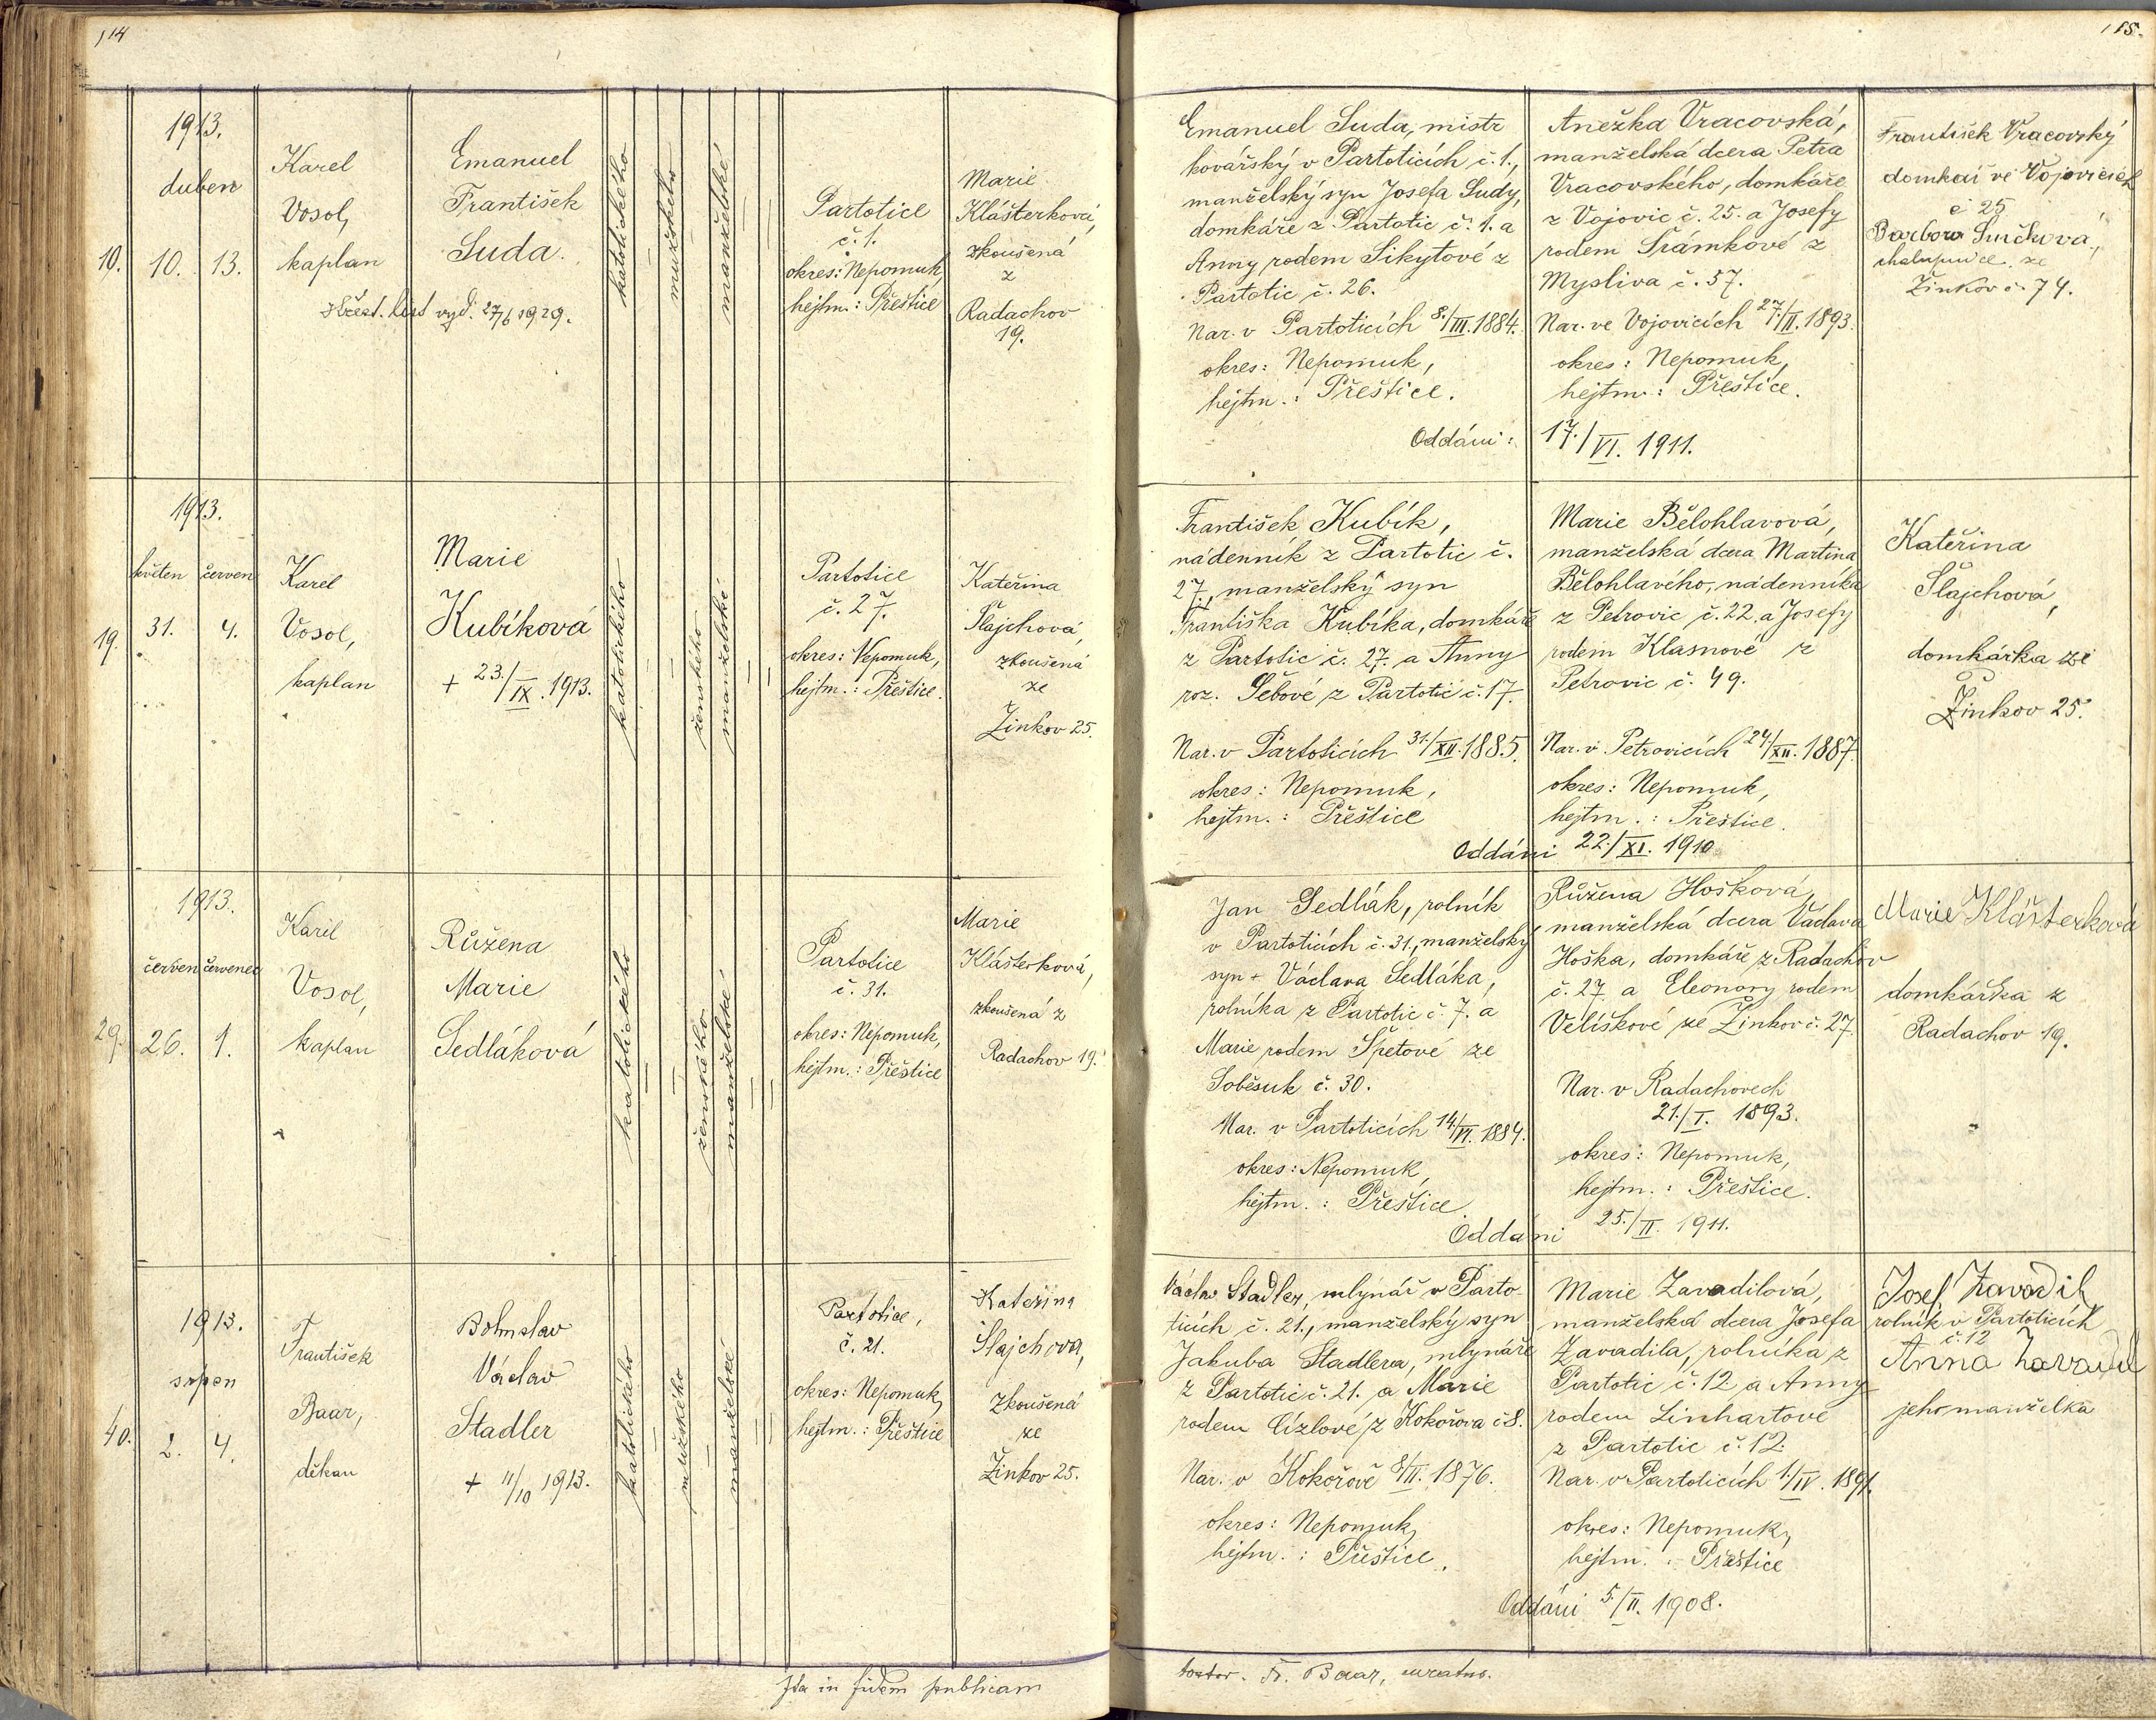 114
115.
1913.
duben
10.
10. 13.
Karel
Vosol,
kaplan
Emanuel
František
Suda.
Křest. list vyd. 27/6 1929.
katolického
mužského
manželské
Partotice
č. 1.
okres: Nepomuk,
hejtm.: Přeštice
Marie
Klášterková,
zkoušená
z
Radachov
19.
Emanuel Suda, mistr
kovářský v Partoticích č. 1.,
manželský syn Josefa Sudy,
domkáře z Partotic č. 1. a
Anny rodem Sikytové z
Partotic č. 26.
Nar. v Partoticích 8./III. 1884.
okres: Nepomuk,
hejtm.: Přeštice.
Anežka Vracovská,
manželská dcera Petra
Vracovského, domkáře
z Vojovic č. 25. a Josefy
rodem Šrámkové z
Mysliva č. 57.
Nar. ve Vojovicích 27./II. 1893.
okres: Nepomuk,
hejtm.: Přeštice.
Oddáni: 17./VI. 1911.
František Vracovský
domkář ve Vojovicích
č 25
Barbora
chalupnice ze
Žinkov č. 74.
1913.
květen červen
19.
31. 4.
Karel
Vosol,
kaplan
Marie
Kubíková
+ 23./IX. 1913.
katolického
ženského
manželské
Partotice
č. 27.
okres: Nepomuk,
hejtm.: Přeštice.
Kateřina
Šlajchová,
zkoušená
ze
Žinkov 25.
František Kubík,
nádenník z Partotic č.
27., manželský syn
Františka Kubíka, domkáře
z Partotic č. 27. a Anny
roz. Šebové z Partotic č. 17.
Nar. v Partoticích 31./XII. 1885.
okres: Nepomuk,
hejtm.: Přeštice
Marie Bělohlavová,
manželská dcera Martina
Bělohlavého, nádenníka
z Petrovic č. 22. a Josefy
rodem Klasnové z
Petrovic č. 49.
Nar. v Petrovicích 24/XII. 1887.
okres: Nepomuk,
hejtm.: Přeštice.
Oddáni 22./XI. 1910
Kateřina
Šlajchová,
domkářka ze
Žinkov 25.
1913.
červen červenec
29.
26. 1.
Karel
Vosol,
kaplan
Růžena
Marie
Sedláková
katolického
ženského
manželské
Partotice
č. 31.
okres: Nepomuk,
hejtm.: Přeštice
Marie
Klášterková,
zkoušená z
Radachov 19.
Jan Sedlák, rolník
v Partoticích č. 31., manželský
syn + Václava Sedláka,
rolníka z Partotic č. 7. a
Marie rodem Špetové ze
Soběsuk č. 30.
Nar. v Partoticích 14./VI. 1884.
okres: Nepomuk,
hejtm.: Přeštice.
Růžena Hošková,
manželská dcera Václava
Hoška, domkáře z Radachov
č. 27 a Eleonory rodem
Velíškové ze Žinkov č. 27.
Nar. v Radachovech
21./I. 1893.
okres: Nepomuk,
hejtm.: Přeštice.
Oddáni 25./II. 1911.
Marie Klášterková
domkářka z
Radachov 19.
1913.
srpen
40.
2. 4.
František
Baar,
děkan
Bohuslav
Václav
Stadler
+ 11/10 1913.
katolického
mužského
manželské
Partotice,
č. 21.
okres: Nepomuk,
hejtm.: Přeštice
Kateřina
Šlajchova,
zkoušená
ze
Žinkov 25.
Václav Stadler, mlynář v Parto-
ticích č. 21., manželský syn
Jakuba Stadlera, mlynáře
z Partotic č. 21. a Marie
rodem Cízlové z Kokořova č 8.
Nar. v Kokořově 8/II. 1876.
okres: Nepomuk,
hejtm.: Přeštice.
Marie Zavadilová,
manželská dcera Josefa
Zavadila, rolníka z
Partotic č. 12 a Anny
rodem Linhartové
z Partotic č. 12.
Nar. v Partoticích 1./IV. 1891.
okres: Nepomuk,
hejtm.: Přeštice
Oddáni 5./II. 1908.
Josef Zavadil
rolník v Partoticích
č. 12
Anna Zavadil
jeho manželka
Ita in fidem publicam
testor. Fr. Baar, curatus.